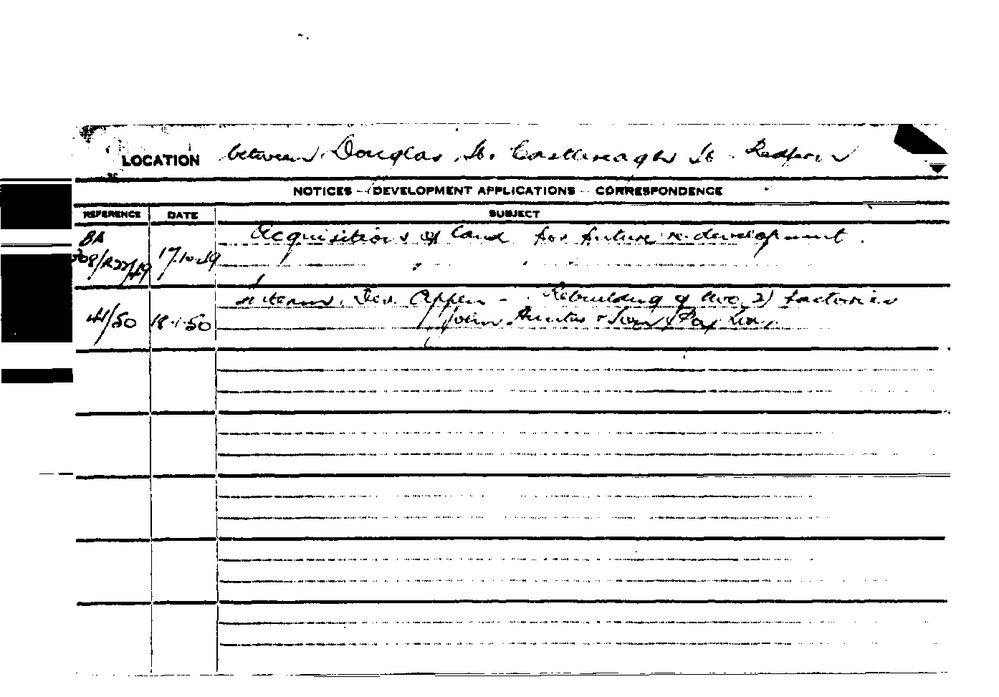 LOCATION between Douglas St. Castlereagh St. Redfern
NOTICES - DEVELOPMENT APPLICATIONS - CORRESPONDENCE
REFERENCE DATE SUBJECT
BA Acquisitions of land for future re-development.
/49 17.10.49
Dev. Applen - Rebuilding of two (2) factories
41/50 18.1.50 John & Sons Pty